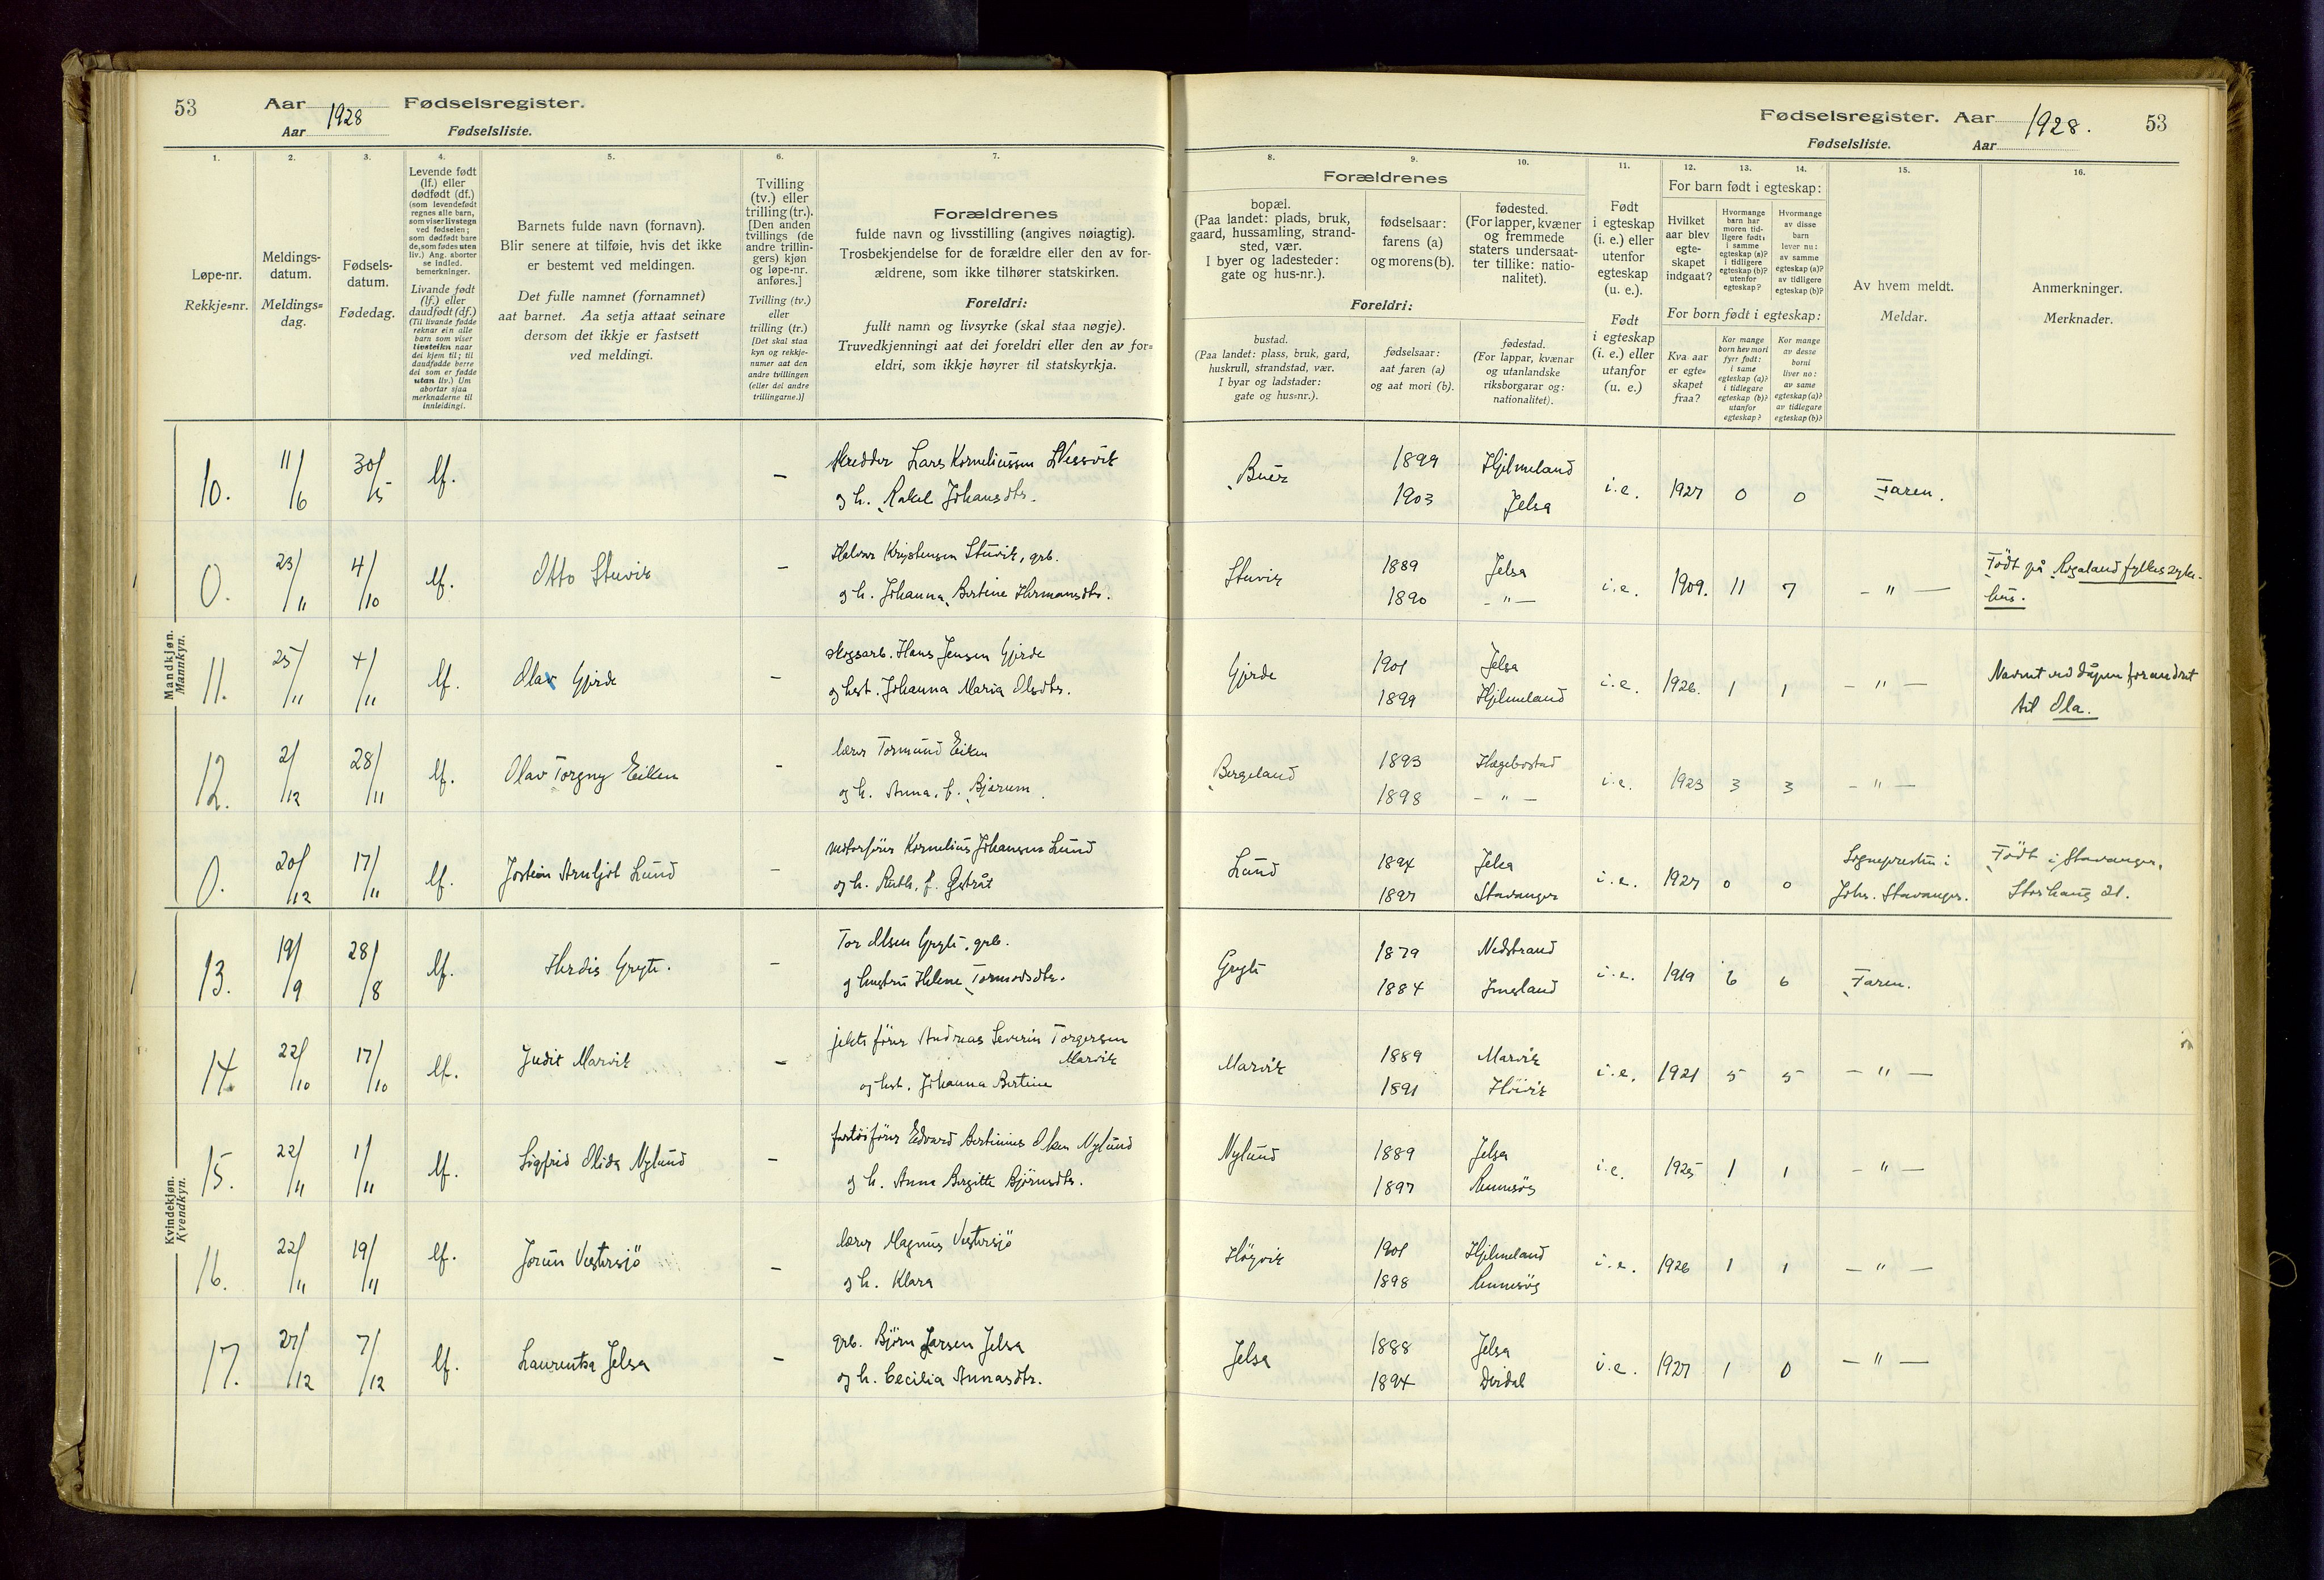 53 Aar 1928 Fødselsregister.
Aar Fødselsliste.
Fødselsregister. Aar 1928. 53
Fødselsliste. Aar
1.
Løpe-nr.
Rekkje=nr.
2.
Meldings-
datum.
Meldings=
dag.
3.
Fødsels-
datum.
Fødedag.
4.
Levende født
(lf.) eller
dødfødt (df.)
(som levendefødt
regnes alle barn,
som viser livstegn
ved fødselen;
som dødfødt bare
de, som fødes uten
liv.) Ang. aborter
se indled.
bemerkninger.
Livande født
(lf.) eller
daudfødt (df.)
(Til livande fødde
reknar ein alle
barn som viser
livsteikn naar
dei kjem til; til
daudfødde berre
dei som er fødde
utan liv.) Um
abortar sjaa
merknaderne til
innleidingi.
5.
Barnets fulde navn (fornavn).
Blir senere at tilføie, hvis det ikke
er bestemt ved meldingen.
Det fulle namnet (fornamnet)
aat barnet. Aa setja attaat seinare
dersom det ikkje er fastsett
ved meldingi.
6.
Tvilling
(tv.) eller
trilling (tr.).
[Den anden
tvillings (de
andre trillin-
gers) kjøn
og løpe-nr.
anføres.]
Tvilling (tv.)
eller
trilling (tr.)
[Det skal staa
kyn og rekkje-
numer aat den
andre tvillingen
(eller dei andre
trillingarne.)]
7.
Forældrenes
fulde navn og livsstilling (angives nøiagtig).
Trosbekjendelse for de forældre eller den av for-
ældrene, som ikke tilhører statskirken.
Foreldri:
fullt namn og livsyrke (skal staa nøgje).
Truvedkjenningi aat dei foreldri eller den av for=
eldri, som ikkje høyrer til statskyrkja.
Forældrenes
8.
bopæl.
(Paa landet: plads, bruk,
gaard, hussamling, strand-
sted, vær.
I byer og ladesteder:
gate og hus-nr.).
9.
fødselsaar:
farens (a)
og morens (b).
10.
fødested.
(For lapper, kvæner
og fremmede
staters undersaat-
ter tillike: natio-
nalitet).
Foreldri:
bustad.
(Paa landet: plass, bruk, gard,
huskrull, strandstad, vær.
I byar og ladstader:
gate og hus=nr.).
fødselsaar:
aat faren (a)
og aat mori (b).
fødestad.
(For lappar, kvænar
og utanlandske
riksborgarar og:
nationalitet).
11.
Født
i egteskap
(i. e.) eller
utenfor
egteskap
(u. e.).
Født
i egteskap
(i. e.) eller
utanfor
(u. e.)
12. 13. 14.
For barn født i egteskap:
Hvilket
aar blev
egte-
skapet
indgaat?
Hvormange
barn har
moren tid-
ligere født:
i samme
egteskap (a)?
i tidligere
egteskap (b)?
utenfor
egteskap?
Hvormange
av disse
barn
lever nu:
av samme
egteskap (a)?
av tidligere
egteskap (b)?
For born født i egteskap:
Kva aar
er egte=
skapet
fraa?
Kor mange
born hev mori
fyrr født:
i same
egteskap (a)?
i tidlegare
egteskap (b)?
utanfor
egteskap?
Kor mange
av desse
borni
liver no:
av same
egteskap (a)?
av tidlegare
egteskap (b)?
15.
Av hvem meldt.
Meldar.
16.
Anmerkninger.
Merknader.
Mandkjøn.
Mannkyn.
10. 11/6 30/5 lf. – Skredder Lars Korneliussen Vessvik
og h. Rakel Johansdtr.
Buer 1899 Hjelmeland
1903 Jelsa
i.e. 1927 0 0 Faren.
0. 23/11 4/10 lf. Otto Stuvik – Halvor Kristensen Stuvik, grb.
og h. Johanna Bertine Hermansdtr.
Stuvik 1889 Jelsa
1890 – " –
i.e. 1909. 11 7 – " – Født på Rogaland fylkessyke-
hus.
11. 25/11 4/11 lf. Olav Gjerde – skogsarb. Hans Jensen Gjerde
og hst. Johanna Maria Olsdtr.
Gjerde 1901 Jelsa
1899 Hjelmeland
i.e. 1926. 1 1 – " – Navnet ved dåpen forandret
til Ola.
12. 2/12 28/11 lf. Olav Torgny Eiken – lærer Tormund Eiken
og h. Anna, f. Bjørum.
Bergeland 1893 Hægebostad
1898 – " –
i.e. 1923 3 3 – " –
0. 20/12 17/11 lf. Jostein Arnljot Lund – motorfører Kornelius Johansen Lund
og h. Ruth, f. Østråt
Lund 1894 Jelsa
1897 Stavanger
i.e. 1927 0 0 Sognepresten i
Johs. Stavanger.
Født i Stavanger,
Storhaug 21.
Kvindekjøn.
Kvendkyn.
13. 19/9 28/8 lf. Herdis Gryte. – Tor Olsen Gryte, grb.
og hustru Helene Tormodsdtr.
Gryte 1879 Nedstrand
1884 Imsland
i.e. 1919 6 6 Faren.
14. 22/10 17/10 lf. Judit Marvik – jekteförer Andreas Severin Torgersen
Marvik
og hst. Johanna Bertine
Marvik 1889 Marvik
1891 Høivik
i.e. 1921 5 5 – " –
15. 22/11 1/11 lf. Sigfrid Olida Nylund – fartöiförer Edvard Bertinius Olsen Nylund
og h. Anna Bergitte Björnsdtr.
Nylund 1889 Jelsa
1897 Rennesöy
i.e. 1925 1 1 – " –
16. 22/11 19/11 lf. Jorun Vestersjö – lærer Magnus Vestersjö
og h. Klara
Högvik 1901 Hjelmeland
1898 Rennesöy
i.e. 1926 1 1 – " –
17. 27/12 7/12 lf. Laurentsa Jelsa – grb. Björn Larsen Jelsa
og h. Cecilia Annasdtr.
Jelsa 1888 Jelsa
1894 Dirdal
i.e. 1927 1 0 – " –